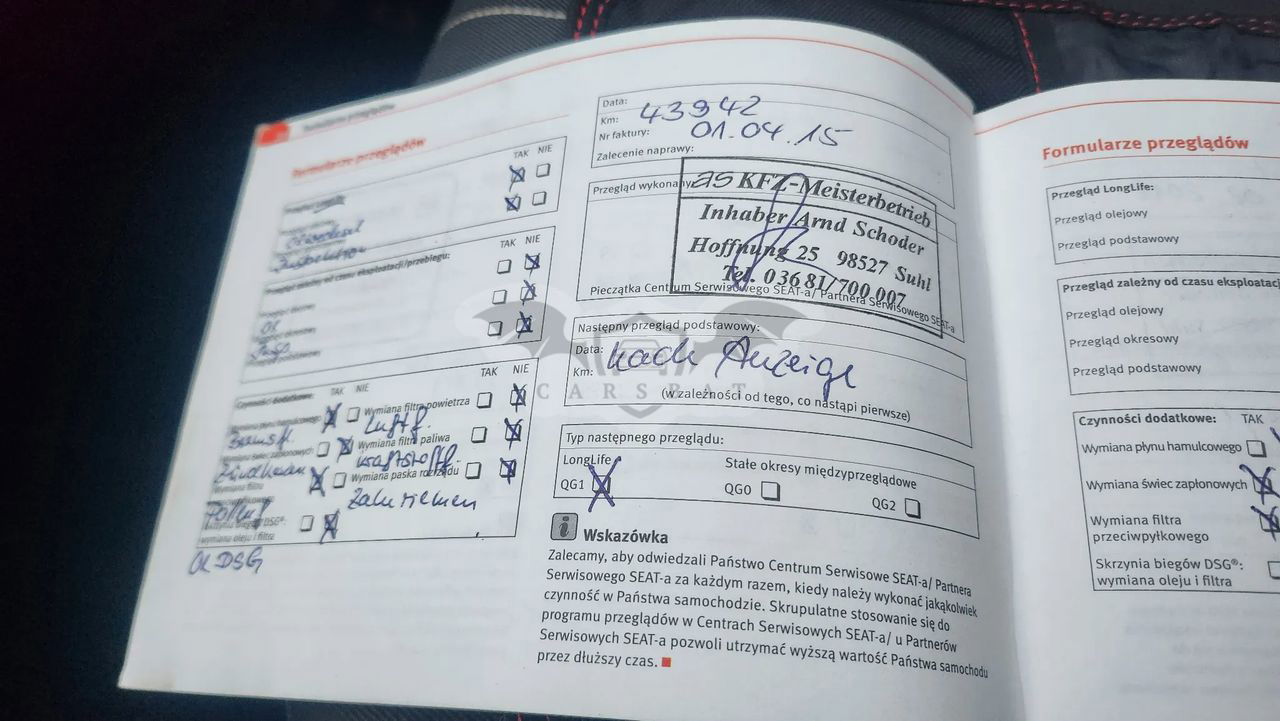 Formularze przeglądów
TAK NIE
Ölwechsel
Inspektion
TAK NIE
Przegląd zależny od czasu eksploatacji/przebiegu:
Öl
Insp.
Czynności dodatkowe: TAK NIE TAK NIE
Wymiana płynu hamulcowego Wymiana filtra powietrza
Bremsfl. Luftf.
Wymiana świec zapłonowych Wymiana filtra paliwa
Zündkerzen Kraftstofff.
Wymiana filtra Wymiana paska rozrządu
przeciwpyłkowego
Pollenf. Zahnriemen
Skrzynia biegów DSG®:
wymiana oleju i filtra
Öl DSG
Data:
Km: 43942
Nr faktury: 01.04.15
Zalecenie naprawy:
Przegląd wykonany
as KFZ-Meisterbetrieb
Inhaber Arnd Schoder
Hoffnung 25 98527 Suhl
Tel. 03681/700 007
Pieczątka Centrum Serwisowego SEAT-a/ Partnera Serwisowego SEAT-a
Następny przegląd podstawowy:
Data: nach Anzeige
Km:
(w zależności od tego, co nastąpi pierwsze)
CARSBAT
Typ następnego przeglądu:
LongLife Stałe okresy międzyprzeglądowe
QG1 QG0 QG2
i Wskazówka
Zalecamy, aby odwiedzali Państwo Centrum Serwisowe SEAT-a/ Partnera
Serwisowego SEAT-a za każdym razem, kiedy należy wykonać jakąkolwiek
czynność w Państwa samochodzie. Skrupulatne stosowanie się do
programu przeglądów w Centrach Serwisowych SEAT-a/ u Partnerów
Serwisowych SEAT-a pozwoli utrzymać wyższą wartość Państwa samochodu
przez dłuższy czas.
Formularze przeglądów
Przegląd LongLife:
Przegląd olejowy
Przegląd podstawowy
Przegląd zależny od czasu eksploatacj
Przegląd olejowy
Przegląd okresowy
Przegląd podstawowy
Czynności dodatkowe: TAK
Wymiana płynu hamulcowego
Wymiana świec zapłonowych
Wymiana filtra
przeciwpyłkowego
Skrzynia biegów DSG®:
wymiana oleju i filtra